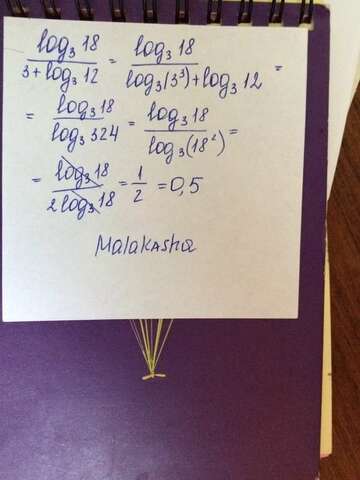 log₃ 18 / 3 + log₃ 12 = log₃ 18 / log₃(3³) + log₃ 12 =
= log₃ 18 / log₃ 324 = log₃ 18 / log₃(18²) =
= log₃ 18 / 2 log₃ 18 = 1/2 = 0,5
Malakasha